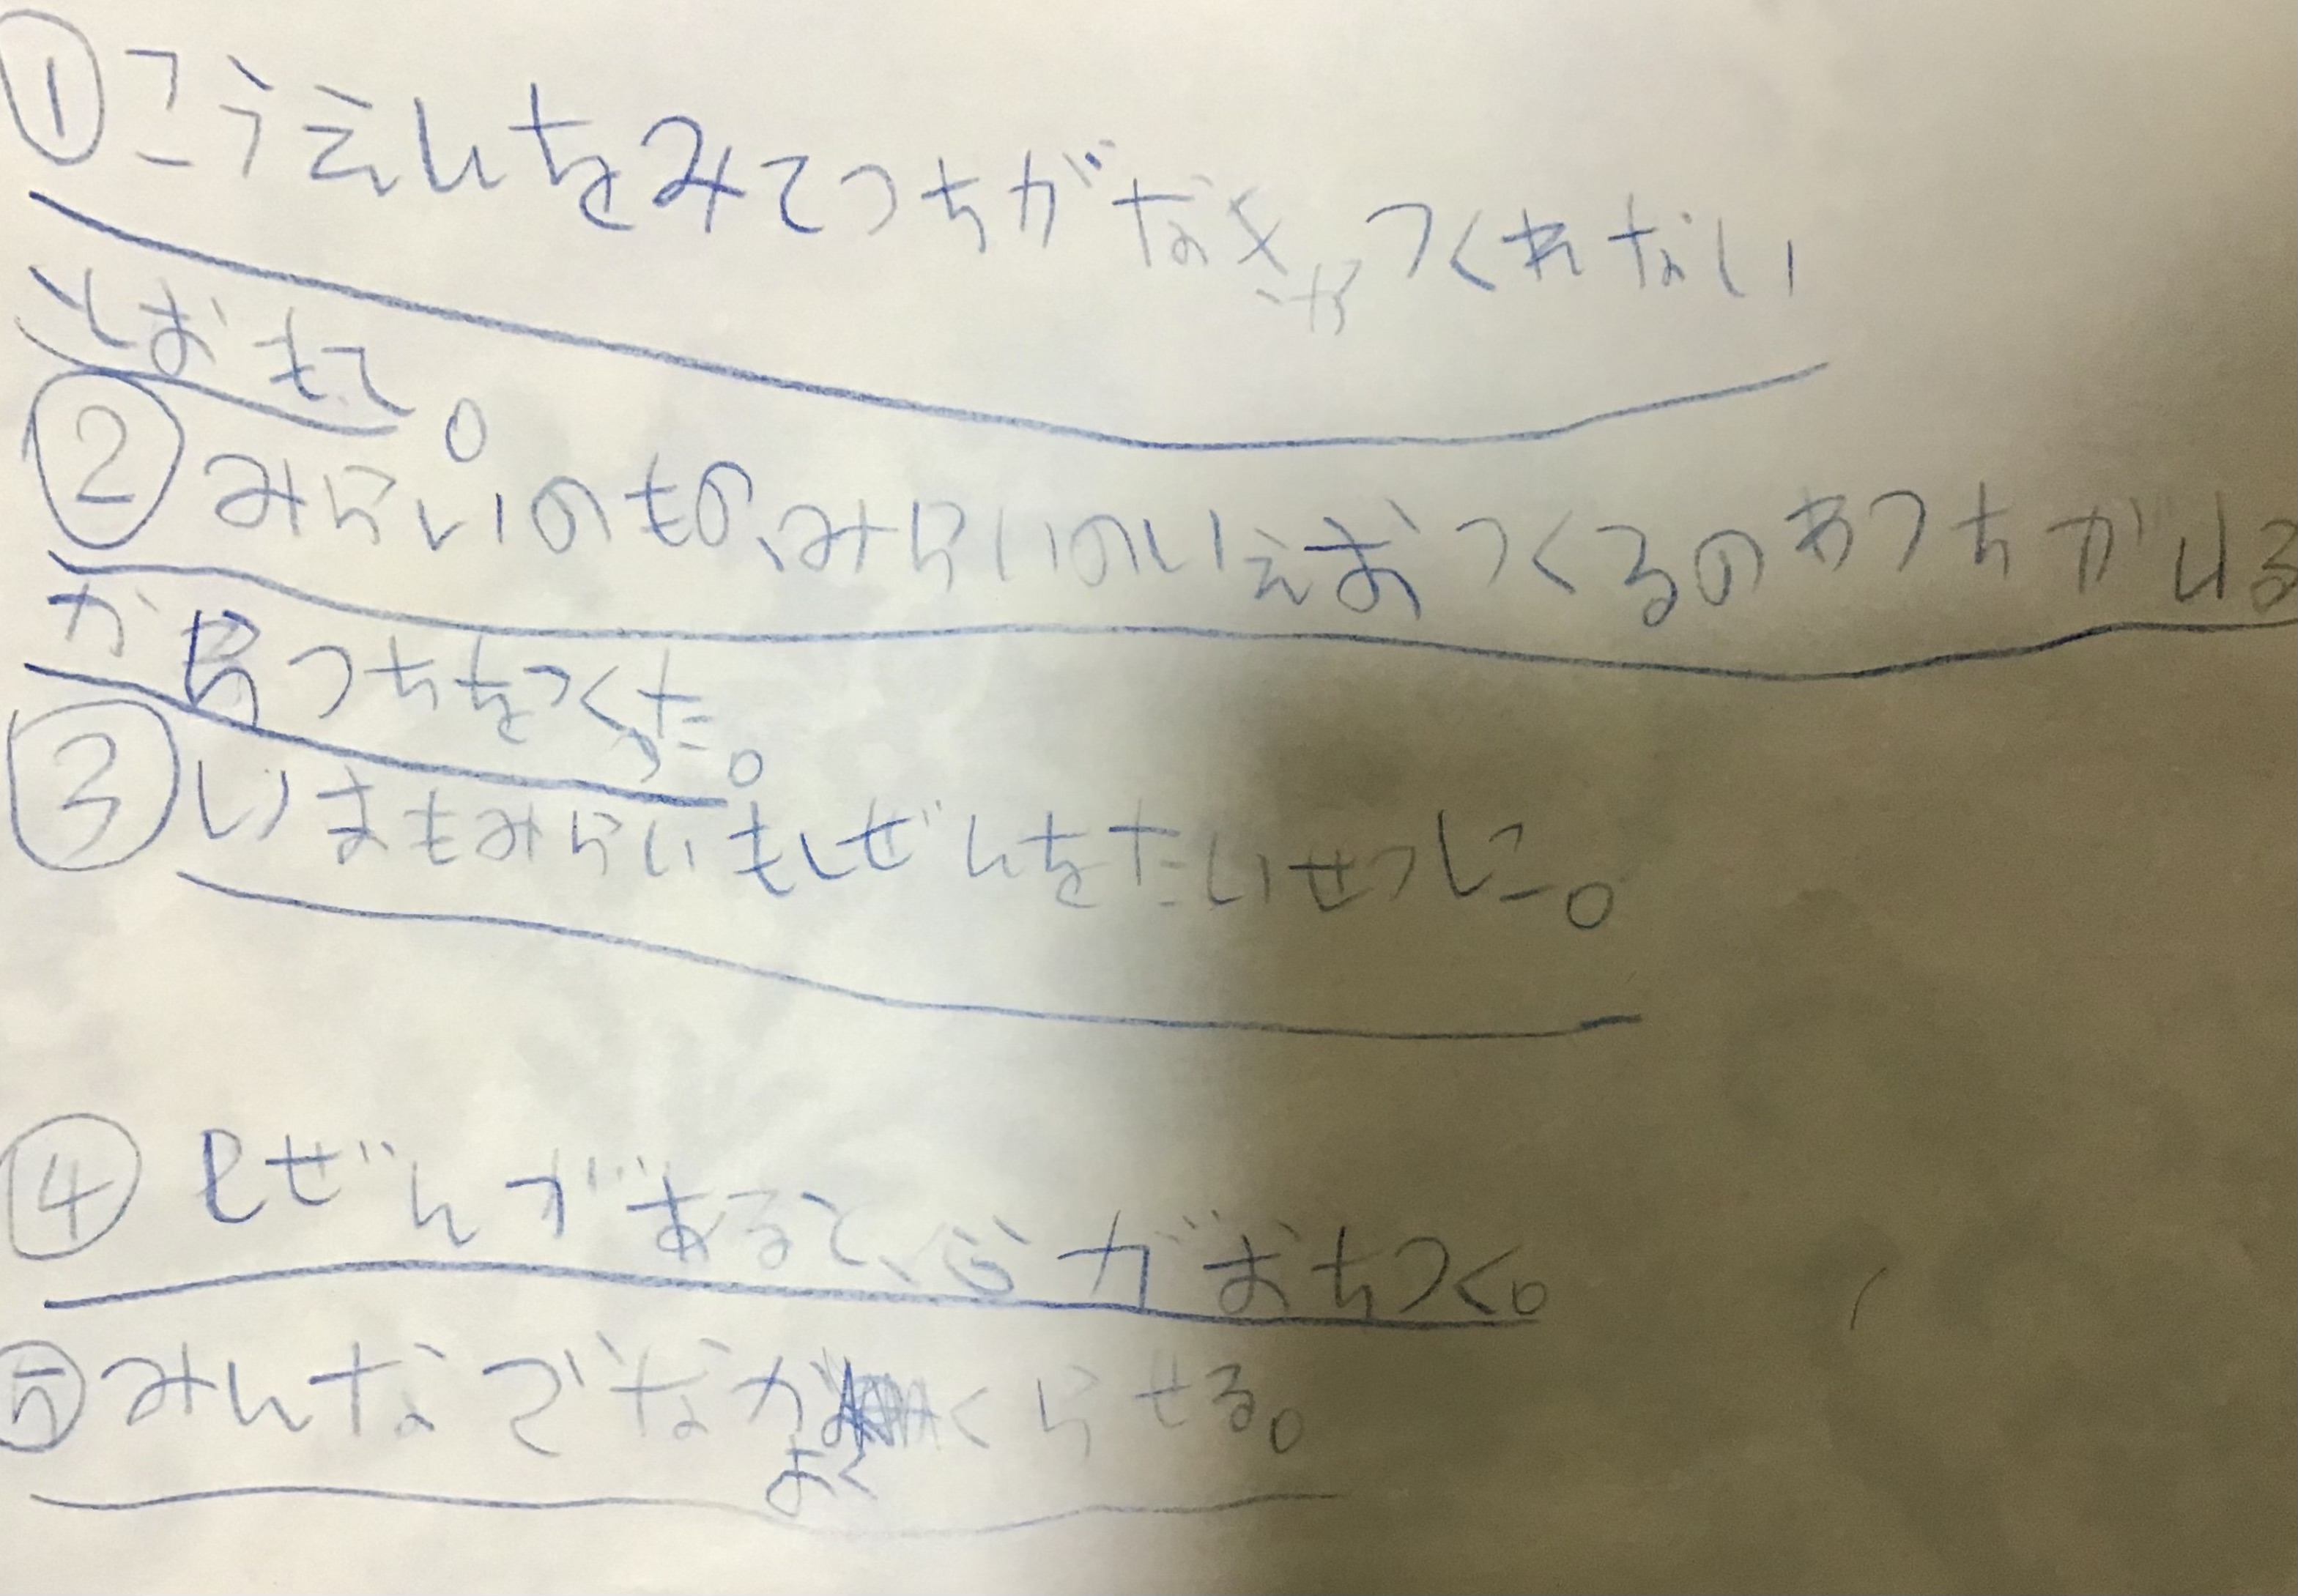 ①こうえんをみてつちがなきかつくれない
とおもて。
②みらいのもの、みらいのいえおつくるのわつちがいる
からつちをつくった。
③いまもみらいもしぜんをたいせつに。
④しぜんがあると、心がおちつく。
⑤みんなでなかよくくらせる。